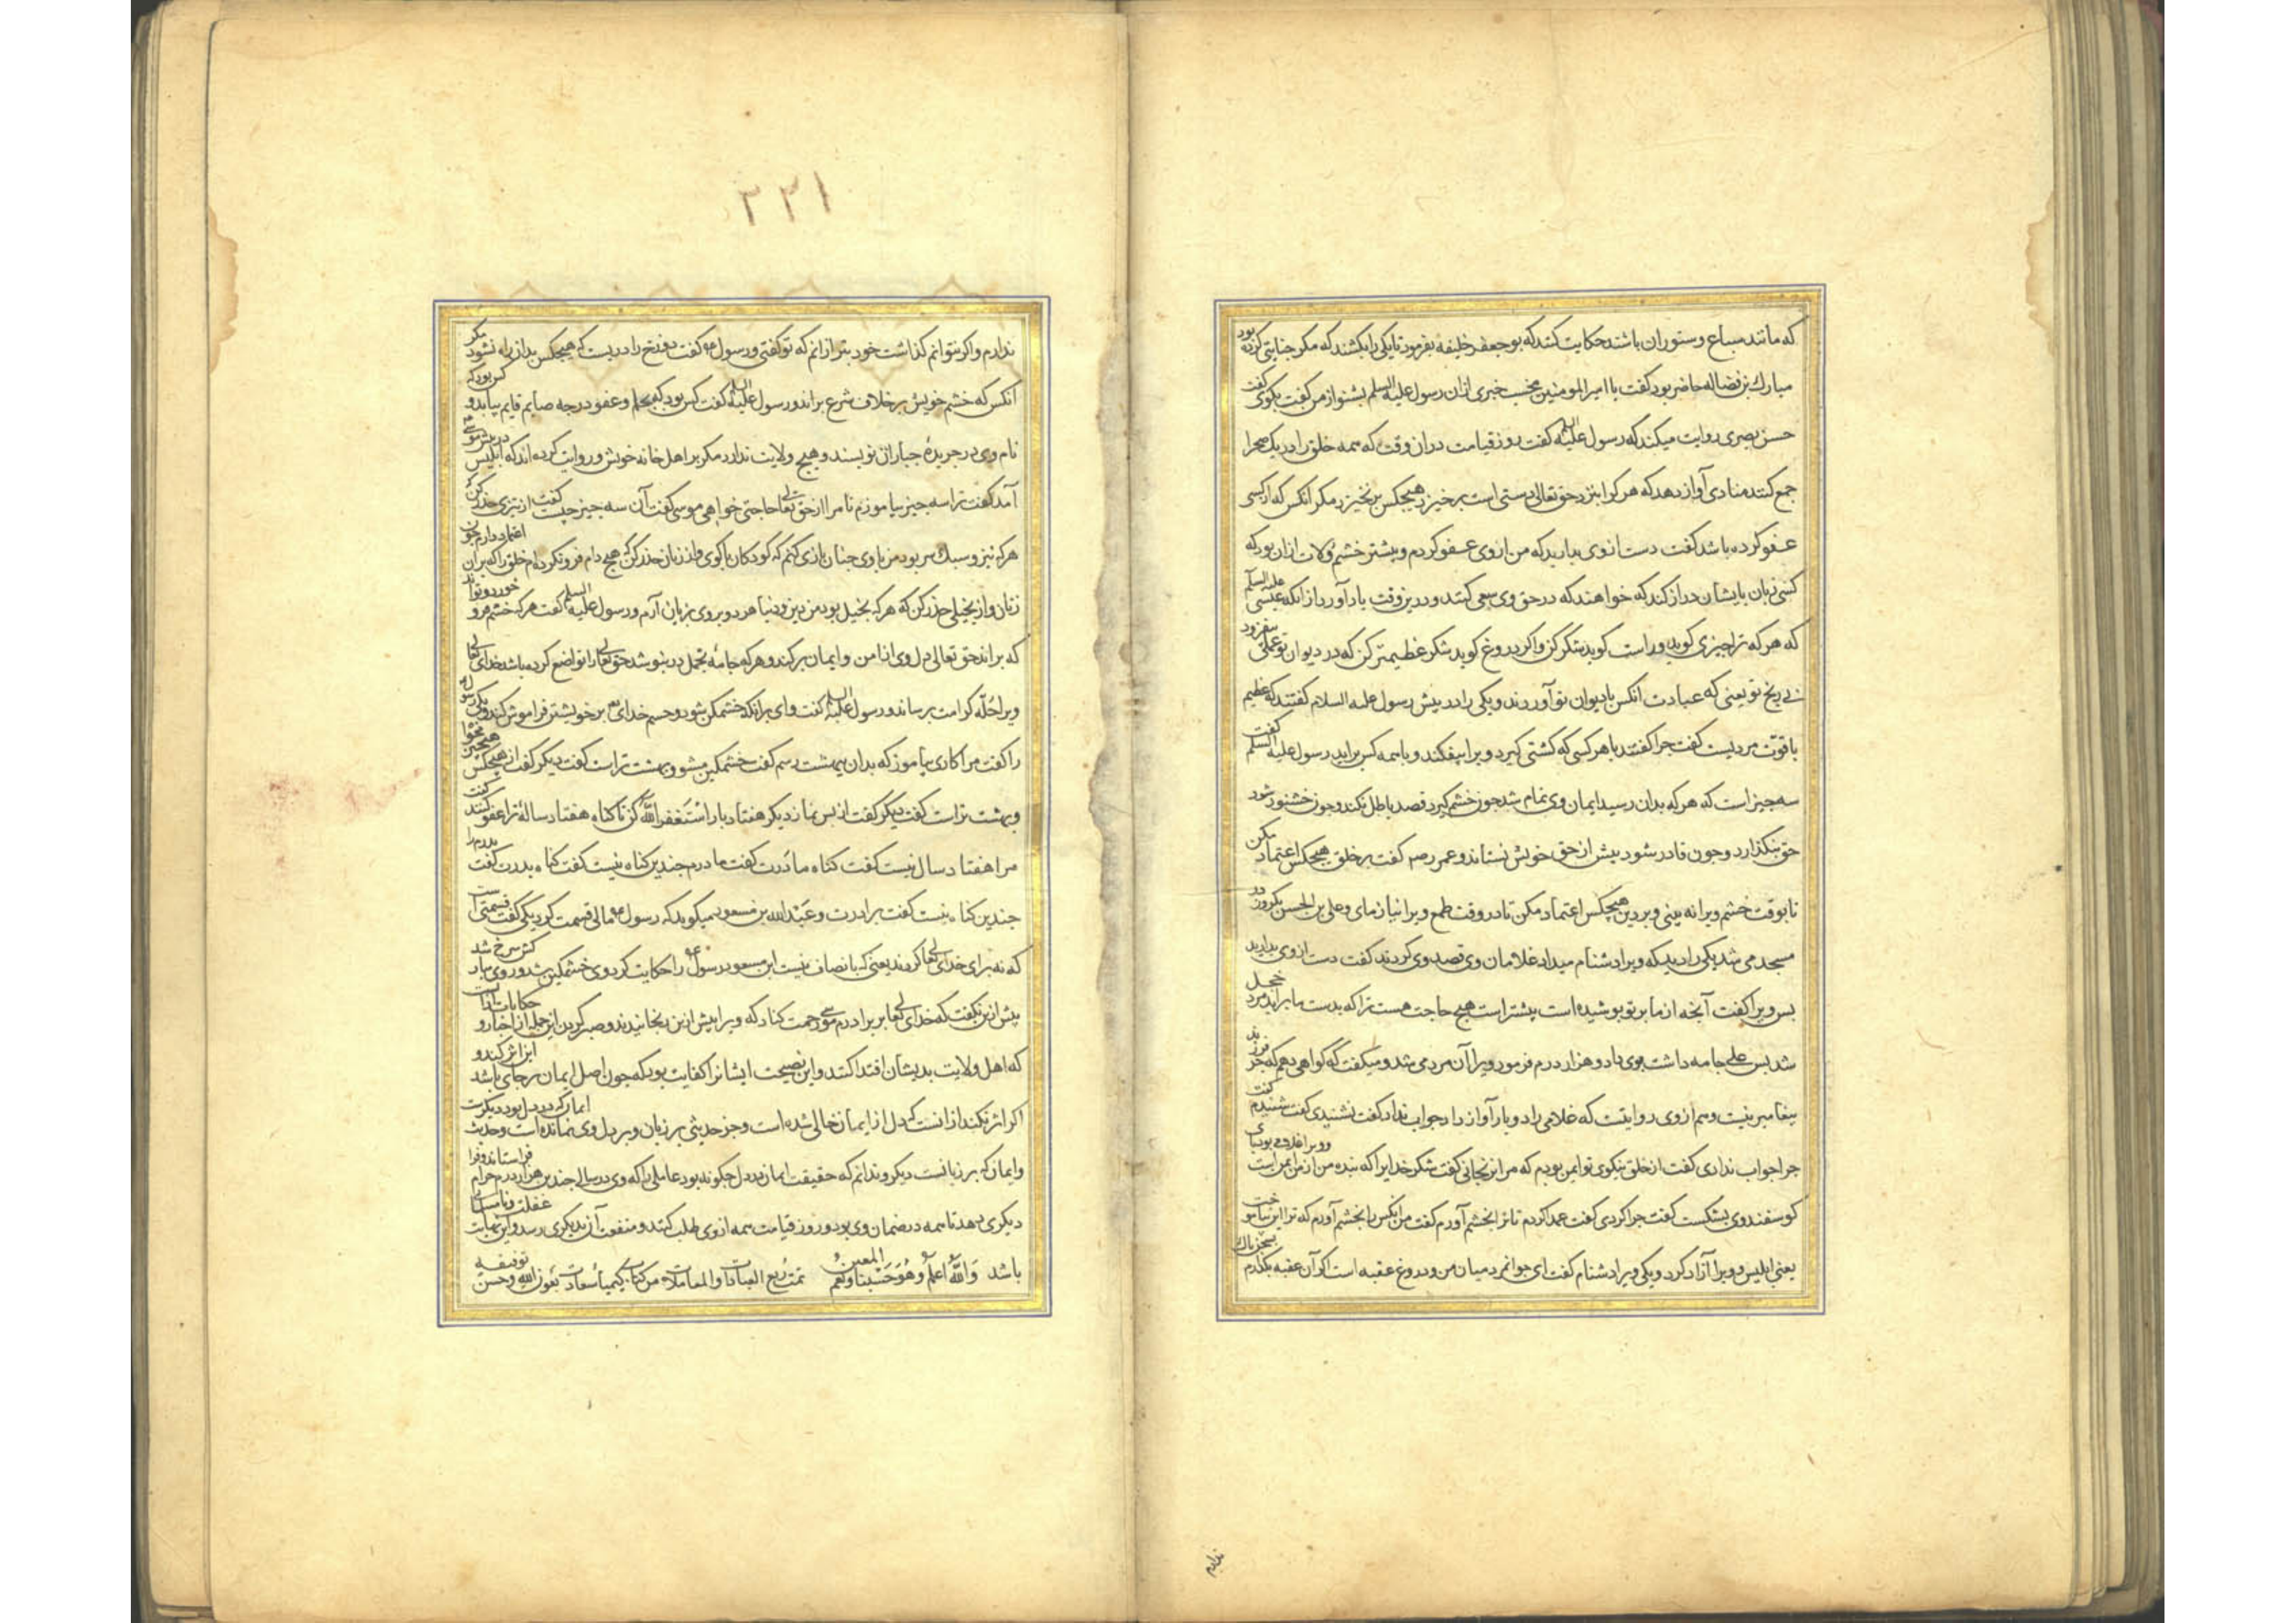 که مانند سباع و ستوران باشند حکایت کنند که بوجعفر خلیفه بفرمود تا یکی را بکشند که مکر جنایتی کرده بود
مبارک بن فضاله حاضر بود گفت یا امیرالمومنین نخست خبری ازان رسول علیه السلم بشنو از من گفت بکوی گفت
حسن بصری روایت میکند که رسول علیه السلم گفت روز قیامت دران وقت که همه خلق را در یک صحرا
جمع کنند منادی آواز دهد که هر کرا بنزد حق تعالی دستی است برخیزد هیچکس برنخیزد مکر انکس که از کسی
عفو کرده باشد گفت دست از وی بدارید که من از وی عفو کردم و بیشتر خشم ولات ازان بود که
کسی زبان بایشان دراز کند که خواهند که در حق وی سعی کنند و درین وقت یاد آورد از انکه عیسی علیه السلم
که هر که ترا چیزی کوید و راست کوید شکر کن و اکر دروغ کوید شکر عظیمتر کن که در دیوان تو عملی بیفزود
بی رنج تو یعنی که عبادت انکس بادیوان تو آورند و یکی را در پیش رسول علیه السلام گفتند که عظیم
با قوّت مردیست گفت چرا گفتند با هر کسی که کشتی کیرد ویرا بیفکند و با همه کس براید رسول علیه السلم گفت
سه چیز است که هر که بدان رسید ایمان وی تمام شد چون خشم کیرد قصد باطل نکند و چون خشنود شود
حق بنکذارد و چون قادر شود بیش از حق خویش نستاند و عمر رضه گفت بر خلق هیچکس اعتماد مکن
تا بوقت خشم ویرا نه بینی و بر دین هیچکس اعتماد مکن تا در وقت طمع ویرا نیازمای و علی بن الحسن یکروز در
مسجد می شد یکی را دید که ویرا دشنام میداد غلامان وی قصد وی کردند گفت دست از وی بدارید
بس ویرا گفت آنچه از ما بر تو بوشیده است بیشتر است هیچ حاجت هست ترا که بدست ما براید مرد خجل
شد بس علی جامه داشت بوی داد و هزار درم فرمود ویرا آن مرد می شد و میکفت که کواهی دهم که جز فرزند
بیغامبر نیست و هم از وی روایتست که غلامی را دو بار آواز داد جواب نداد گفت نشنیدی گفت شنیدم گفت
چرا جواب ندادی گفت از خلق نیکوی تو ایمن بودم که مرا نرنجانی گفت شکر خدایرا که بنده من از من ایمن است
کوسفند وی بشکست گفت چرا کردی گفت عمدا کردم تا ترا بخشم آورم گفت من انکس را بخشم آورم که ترا این بیاموخت
یعنی ابلیس و ویرا آزاد کرد و یکی ویرا دشنام گفت ای جوانمرد میان من و دوزخ عقبه است اکر آن عقبه بکذارم
ندارم
۲۲۱
ندارم و اکر نتوانم کذاشت خود بتر ازانم که تو گفتی و رسول گفت دوزخ را دریست که هیچکس بدان راه نشود مکر
انکس که خشم خویش بر خلاف شرع براند و رسول علیه السلم گفت کس بود که بحلم و عفو درجه صایم قایم بیابد و کس بود که
نام وی در جریدهٔ جباران نویسند و هیچ ولایت ندارد مکر بر اهل خانه خویش و روایت کرده اند که ابلیس در پیش موسی
آمد گفت ترا سه چیز بیاموزم تا مرا از حق تعالی حاجتی خواهی موسی گفت آن سه چیز چیست گفت از تیزی حذر کن
هر که تیز و سبک سر بود من با وی چنان بازی کنم که کودکان با کوی و از زنان حذر کن که هیچ دام فرو نکرده ام خلق را که بران اعتماد دارم چون
زنان و از بخیلی حذر کن که هر که بخیل بود من دین و دنیا هر دو بر وی بزیان آرم و رسول علیه السلم گفت هر که خشم فرو خورد و تواند
که براند حق تعالی دل وی از امن و ایمان بر کند و هر که جامهٔ تجمل در نبوشد حق تعالی را تواضع کرده باشد خدای تعالی
ویرا حُلّه کرامت برساند و رسول علیه السلم گفت وای برانکه خشمکین شود و خشم خدای بر خویشتن فراموش کند و یکی رسول
را گفت مرا کاری بیاموز که بدان ببهشت رسم گفت خشمکین مشو و بهشت تراست گفت دیکر گفت از هیچکس هیچ چیز مخواه
و بهشت تراست گفت دیکر گفت از بس نماز دیکر هفتاد بار استغفر الله کن تا کناه هفتاد سالهٔ ترا عفو کنند گفت
مرا هفتاد سال نیست گفت کناه مادرت گفت مادرم چندین کناه نیست گفت کناه بدرت گفت بدرم را
چندین کناه نیست گفت برادرت و عبدالله بن مسعود میکوید که رسول مالی قسمت کرد یکی گفت قسمتی است
که نه برای خدای تعالی کردند یعنی که بانصاف نیست ابن مسعود رسول را حکایت کرد وی خشمکین شد و روی مبارکش سرخ شد
بیش ازین نکفت که خدای تعالی بر برادرم موسی رحمت کناد که ویرا بیش ازین رنجانیدند و صبر کرد این جمله از اخبار و حکایات
که اهل ولایت بدیشان اقتدا کنند و این نصیحت ایشانرا کفایت بود که چون اصل ایمان بر جای باشد این اثر کند و
اکر اثر نکند ازانست که دل از ایمان خالی شده است و جز حدیثی بر زبان و بر دل وی نمانده است و حدیث ایمان که در دل بود دیکرست
و ایمان که بر زبانست دیکر و ندانم که حقیقت ایمان در دل چکونه بود عاملی را که وی در سال چندین هزار درم حرام فراستاند و فرا
دیکری دهد تا همه در ضمان وی بود و روز قیامت همه از وی طلب کنند و منفعت آن بدیکری رسد و این نهایت غفلت و نامسلمانی
باشد والله اعلم وهو حسبنا ونعم المعین تمت ربع العبادات والمعاملات من کتاب کیمیا سعادت بعون الله وحسن توفیقه